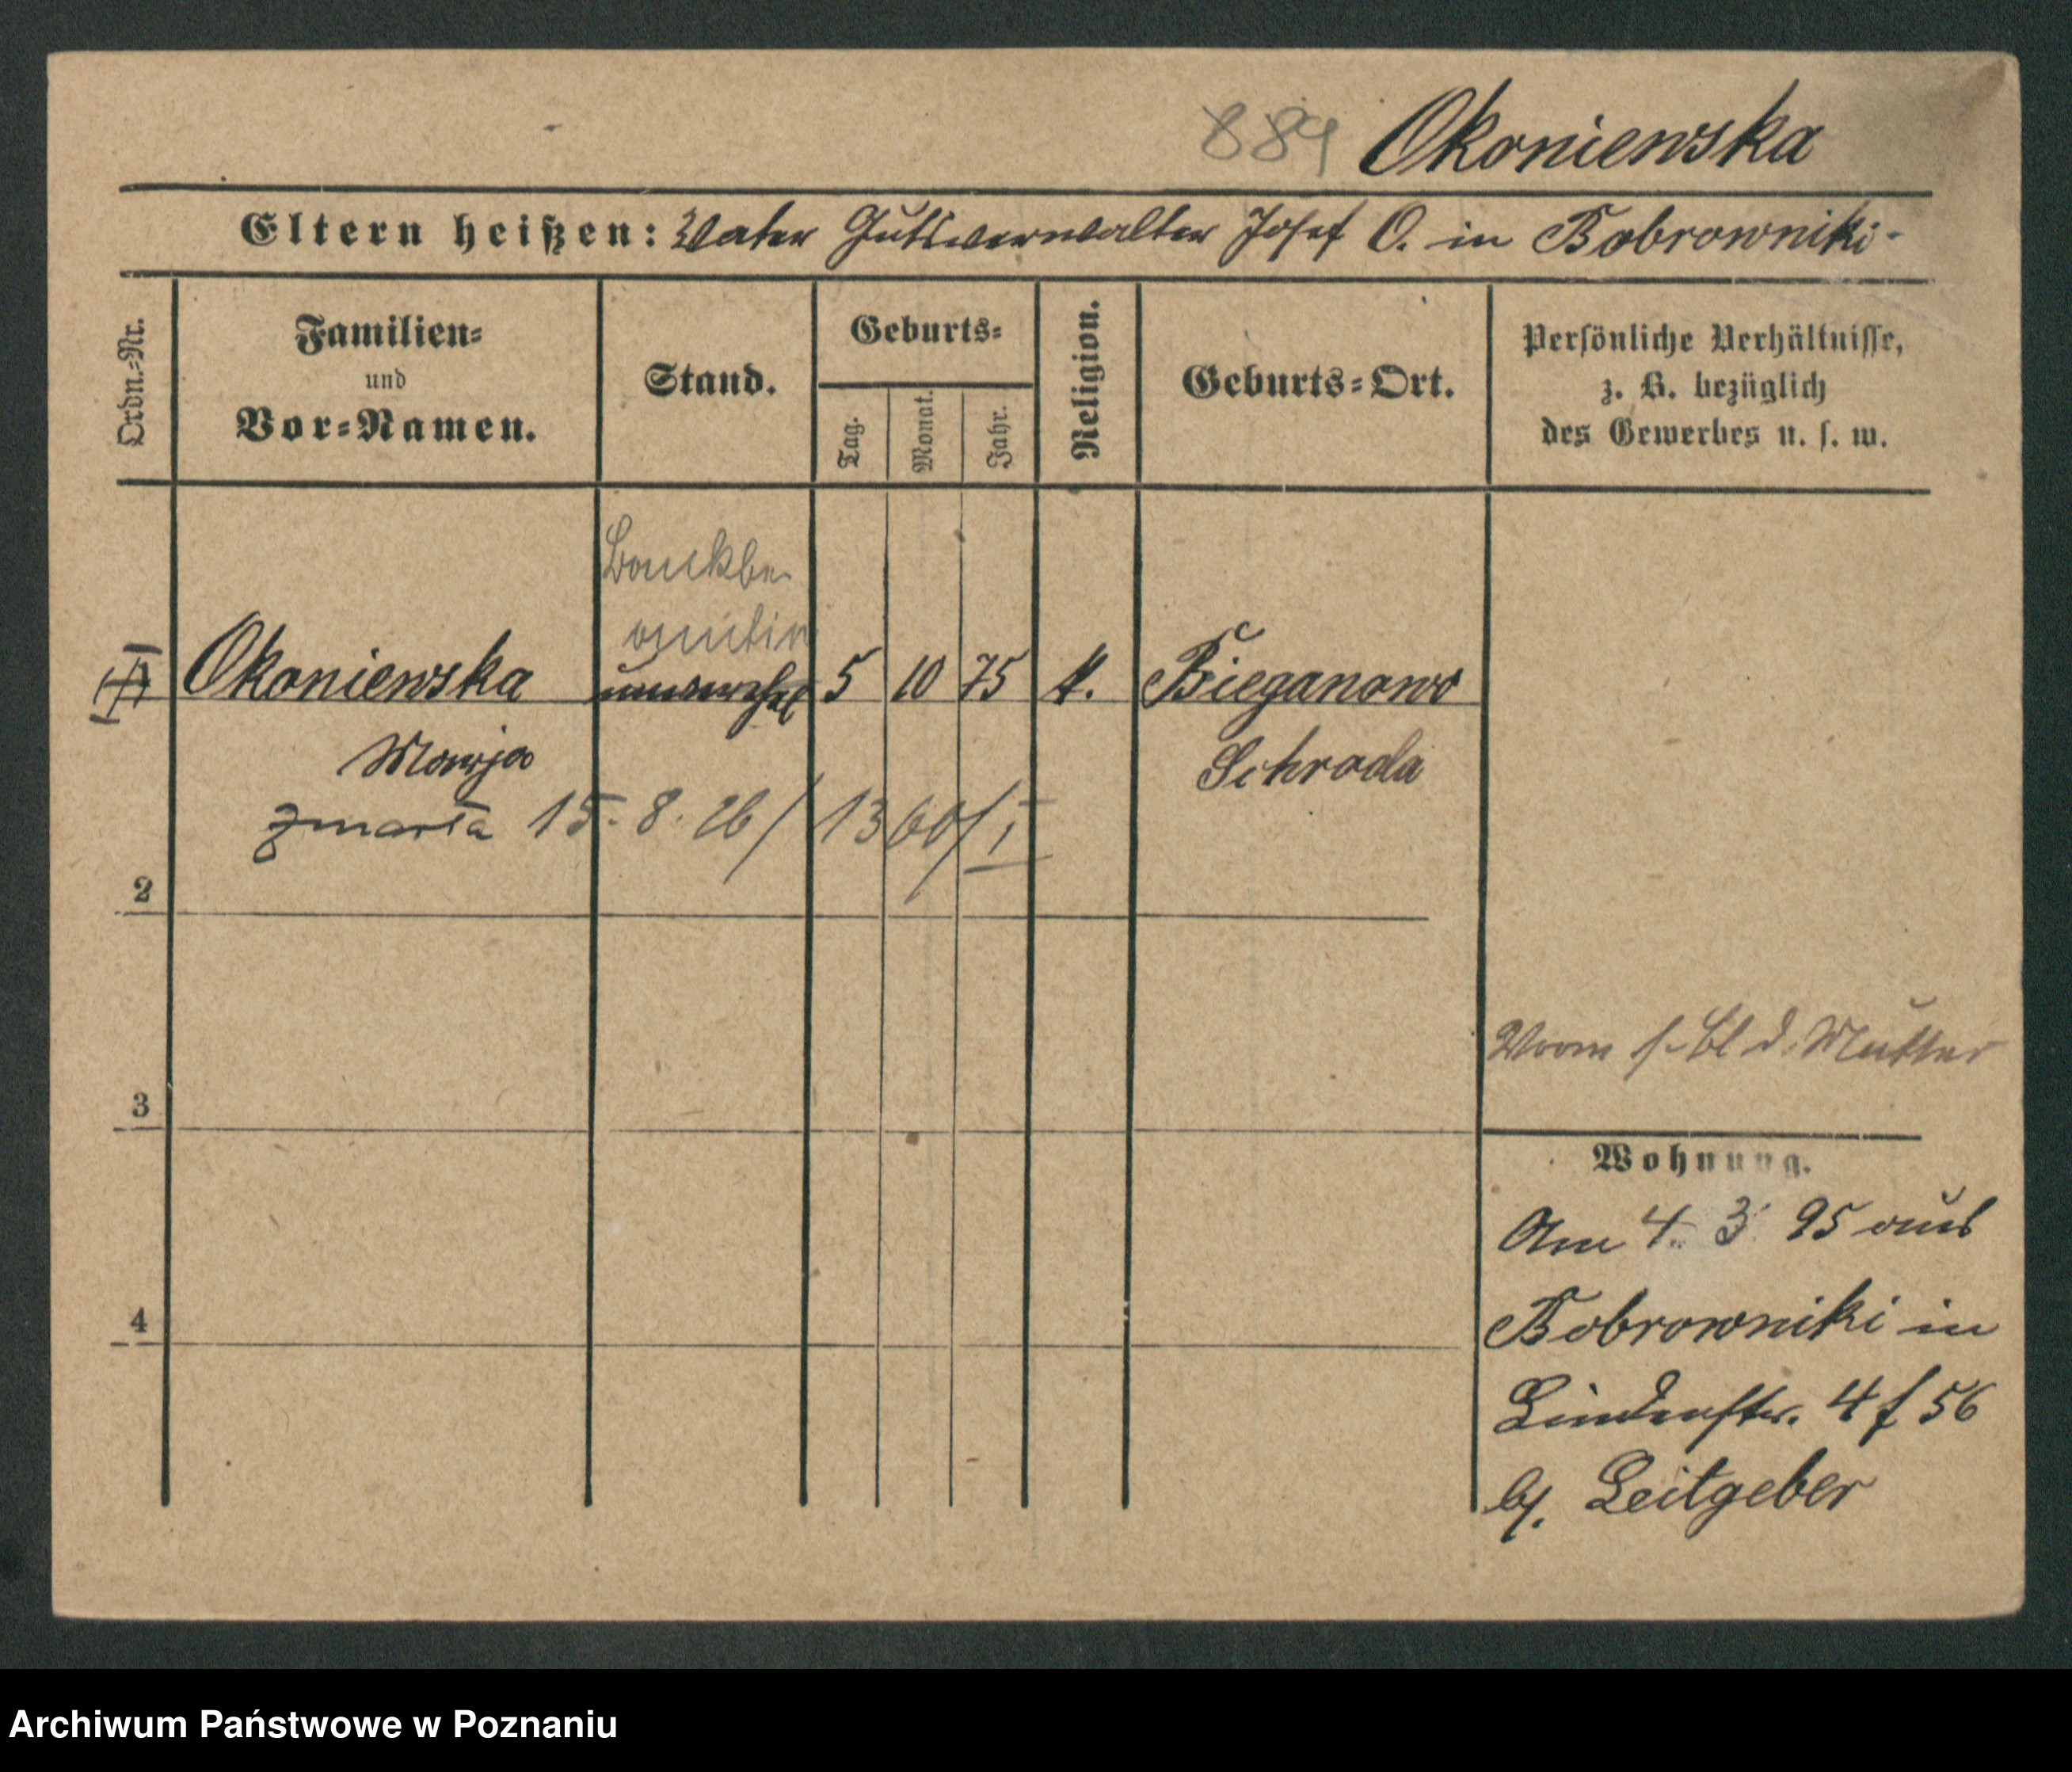 884 Okoniewska
Eltern heißen: Vater Gutsverwalter Josef O. in Bobrowniki
Ordn.-Nr.
Familien-
und
Vor-Namen.
Stand.
Geburts-
Tag.
Monat.
Jahr.
Religion.
Geburts-Ort.
Persönliche Verhältnisse,
z. B. bezüglich
des Gewerbes u. s. w.
Bankbe
amtin
Okoniewska unverehel 5 10 75 k. Bieganowo
Marja Schroda
zmarła 15. 8. 26/1360/I
2
3
4
Vorm s. Bl d. Mutter
Wohnung.
Am 4. 3. 95 aus
Bobrowniki in
Lindenstr. 4 f 56
by. Leitgeber
Archiwum Państwowe w Poznaniu